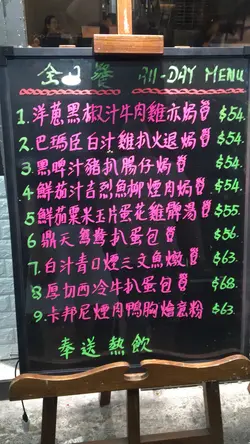 全日餐 All-DAY MENU
1.洋蔥黑椒汁牛肉雞亦焗 $54.
2.巴馬臣白汁雞扒火退焗 $54.
3.黑啤汁豬扒腸仔焗 $54.
4.鮮茄汁吉烈魚柳煙肉焗 $54.
5.鮮茄粟米玉片蛋花雞髀湯 $55.
6.鼎天鴛鴦扒蛋包 $56.
7.白汁青口煙三文魚燉 $63.
8.厚切西冷牛扒蛋包 $68.
9.卡邦尼煙肉鴨胸燴意粉 $63.
奉送熱飲